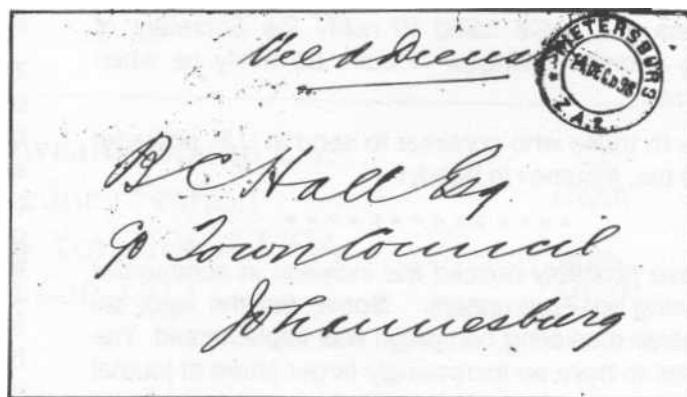 Veld dienst
PIETERSBURG
14 DEC 98
Z.A.R.
B C Hall Esq
c/o Town Council
Johannesburg